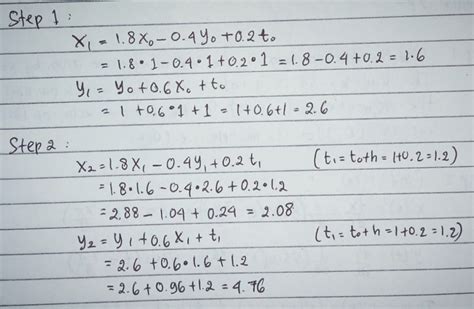 Step 1 :
x₁ = 1.8x₀ – 0.4y₀ + 0.2t₀
= 1.8 • 1 – 0.4 • 1 + 0.2 • 1 = 1.8 – 0.4 + 0.2 = 1.6
y₁ = y₀ + 0.6x₀ + t₀
= 1 + 0.6 • 1 + 1 = 1 + 0.6 + 1 = 2.6
Step 2 :
x₂ = 1.8x₁ – 0.4y₁ + 0.2t₁ (t₁ = t₀ + h = 1 + 0.2 = 1.2)
= 1.8 • 1.6 – 0.4 • 2.6 + 0.2 • 1.2
= 2.88 – 1.04 + 0.24 = 2.08
y₂ = y₁ + 0.6x₁ + t₁ (t₁ = t₀ + h = 1 + 0.2 = 1.2)
= 2.6 + 0.6 • 1.6 + 1.2
= 2.6 + 0.96 + 1.2 = 4.76